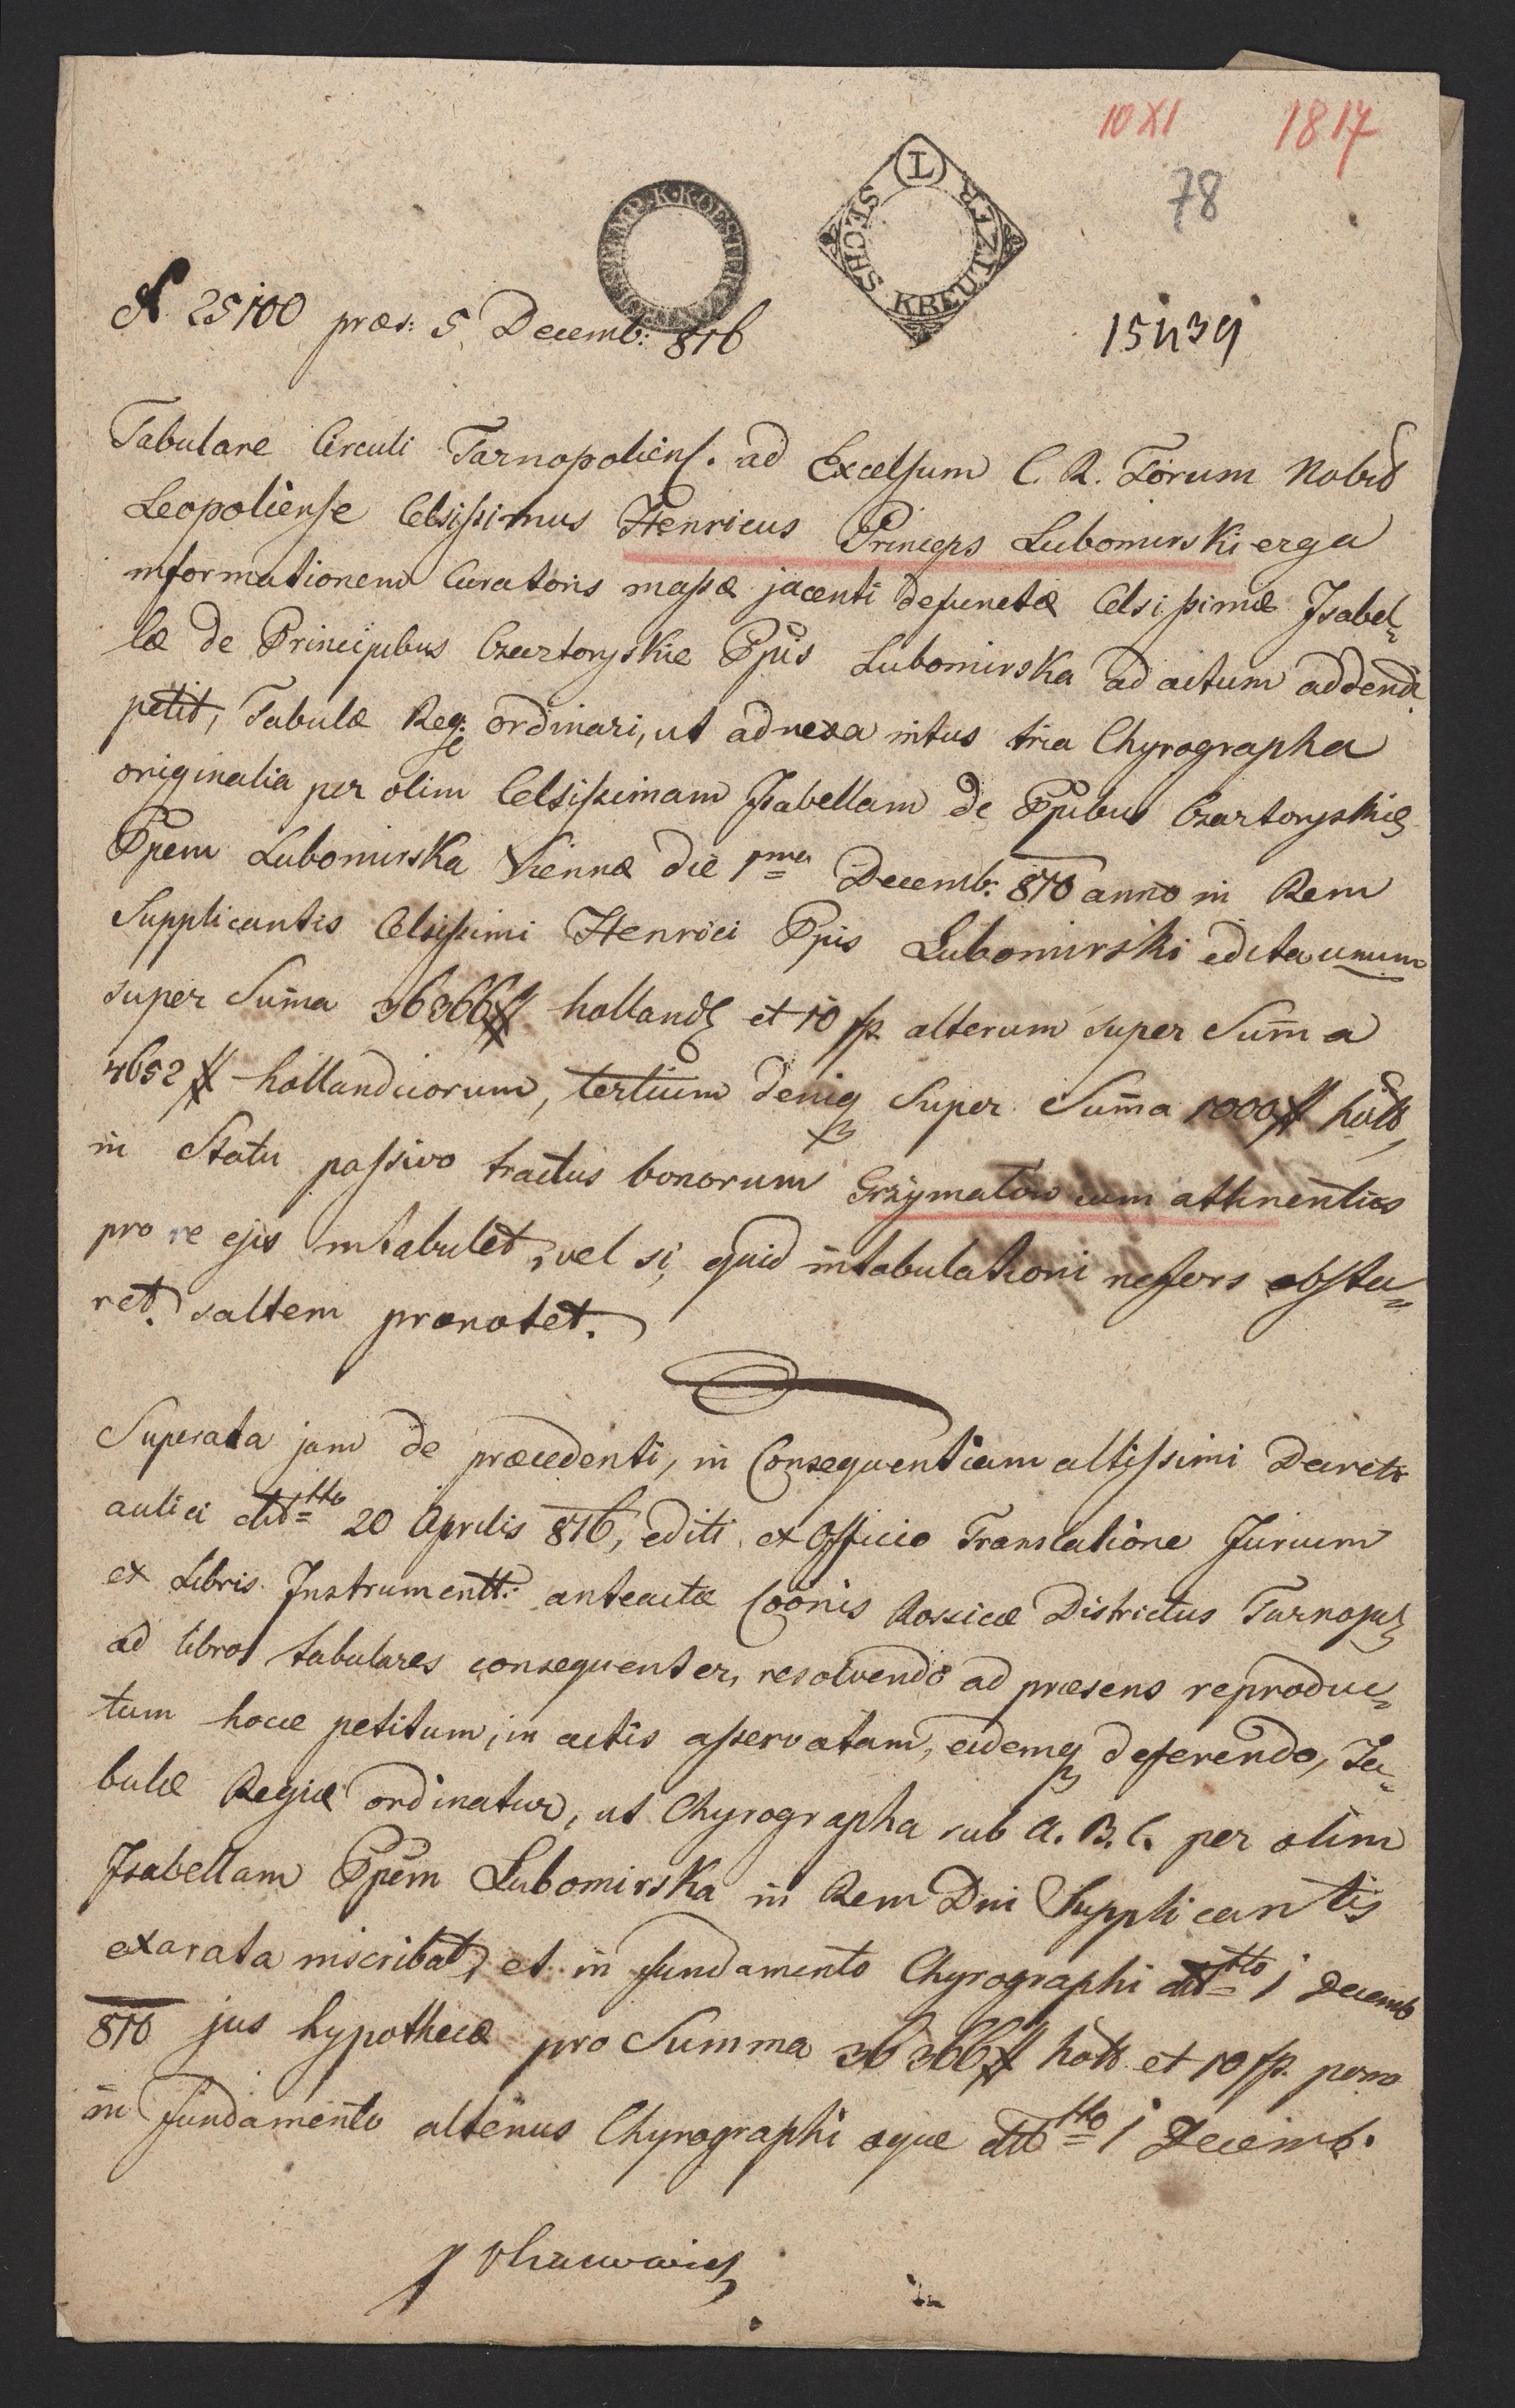 10 XI 1817
78
L
SECHS KREUTZER
N 25100 præs: 5 Decemb: 816
15439
Tabulare Circuli Tarnopoliens. ad Excelsum C. R. Forum Nobil
Leopoliense Celsissimus Henricus Princeps Lubomirski erga
informationem Curatoris massæ jacenti defunctæ Celsissimæ Isabel=
læ de Principibus Czartoryskie Ppis Lubomirska ad actum addendi
petit, Tabulæ Reg: ordinari, ut adnexa intus tria Chyrographa
originalia per olim Celsissimam Isabellam de Ppibus Czartoryskie
Ppem Lubomirska Viennæ die 1ma Decemb: 810 anno in Rem
Supplicantis Celsissimi Henrici Ppis Lubomirski edita unum
super Suma 36366 # holland et 10 fp. alterum super Suma
4652 # hollandicorum, tertium deniq super Suma 1000 # holl,
in Statu passivo tractus bonorum Grzymałow cum attinentiis
pro re ejus intabulet, vel si, quid intabulationi nefors obsta=
ret. saltem prænotet.
Superata jam de præcedenti, in Consequentiam altissimi Decreti
aulici ddtto 20 Aprilis 816, editi, ex Officio Translatione Jurium
ex Libris Instrumentt: anteactæ Coonis Rossicæ Districtus Tarnopol
ad libros tabulares consequenter, resolvendo ad præsens reproduc=
tum hocce petitum, in actis asservatam, eidemq deferendo, Ta=
bulæ Regiæ ordinatur, ut Chyrographa sub A. B. C. per olim
Isabellam Ppem Lubomirska in Rem Dni Supplicantis
exarata inscribat, et in fundamento Chyrographi ddtto 1 Decemb
810 jus hypothecæ pro Summa 36366 # holl. et 10 fp. porro
in fundamento alterius Chyrographi æque ddtto 1 Decemb.